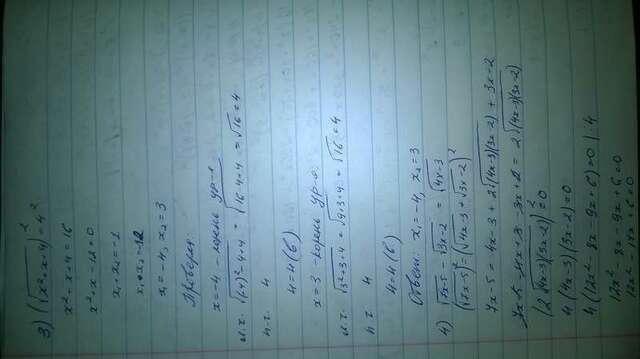 3) (√x²+x+4)² = 4²
x²+x+4=16
x²+x-12=0
x₁+x₂=-1
x₁x₂=-12
x₁=-4, x₂=3
Проверка
x=-4 -корень ур-я
л.ч. √(-4)²-4+4 = √16-4+4 = √16=4
п.ч. 4
4=4 (в)
x=3 -корень ур-я
л.ч. √3²+3+4 = √9+3+4 = √16=4
п.ч. 4
4=4 (в)
Ответ: x₁=-4, x₂=3
4) √7x-5 - √3x-2 = √4x-3
(√7x-5)² = (√4x-3 + √3x-2)²
7x-5 = 4x-3 + 2√(4x-3)(3x-2) + 3x-2
7x-5-4x+3-3x+2 = 2√(4x-3)(3x-2)
(2√(4x-3)(3x-2))²=0
4(4x-3)(3x-2)=0
4(12x²-8x-9x+6)=0 |:4
12x²-8x-9x+6=0